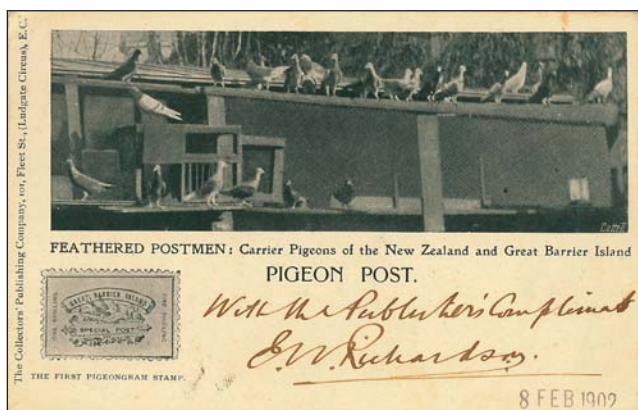 The Collectors' Publishing Company, 101, Fleet St., (Ludgate Circus), E.C.
FEATHERED POSTMEN: Carrier Pigeons of the New Zealand and Great Barrier Island
PIGEON POST.
GREAT BARRIER ISLAND
SPECIAL POST
ONE SHILLING
ONE SHILLING
THE FIRST PIGEONGRAM STAMP.
With the Publisher's Compliments
E.W. Richardson.
8 FEB 1902